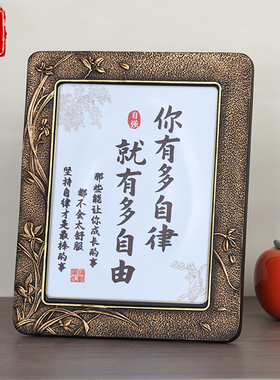 你有多自律
就有多自由
自强
那些能让你成长的事
都不会太舒服
坚持自律才是最棒的事